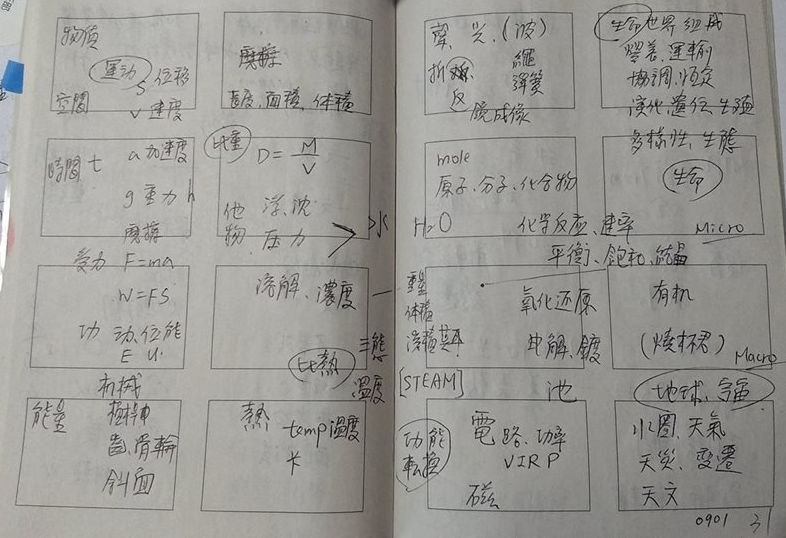 物質
運動 S 位移
空間 V 速度
摩擦
長度、面積、体積
時間 t a 加速度
g 重力 h
摩擦
受力 F=ma
W=FS
功 動、位能
E U
机械
能量 槓桿
齒、滑輪
斜面
比重 D = M/V
他物 浮、沈
圧力
水
溶解、濃度
三態
比熱
溫度
熱 temp 溫度
卡
聲、光、(波)
折 繩
反 彈簧
鏡成像
mole
原子、分子、化合物
H2O 化学反应、速率
平衡、飽和、能量
重量
体積
氧化还原
电解、鍍
[STEAM] 池
功能
転換
電 路、功率
VIRP
磁
生命世界組成
營養、運輸
協調、恆定
演化、遺伝、生殖
多樣性、生態
生命
Micro
有机
(燒杯君)
Macro
地球、宇宙
水圏、天氣
天災、変遷
天文
0901 31